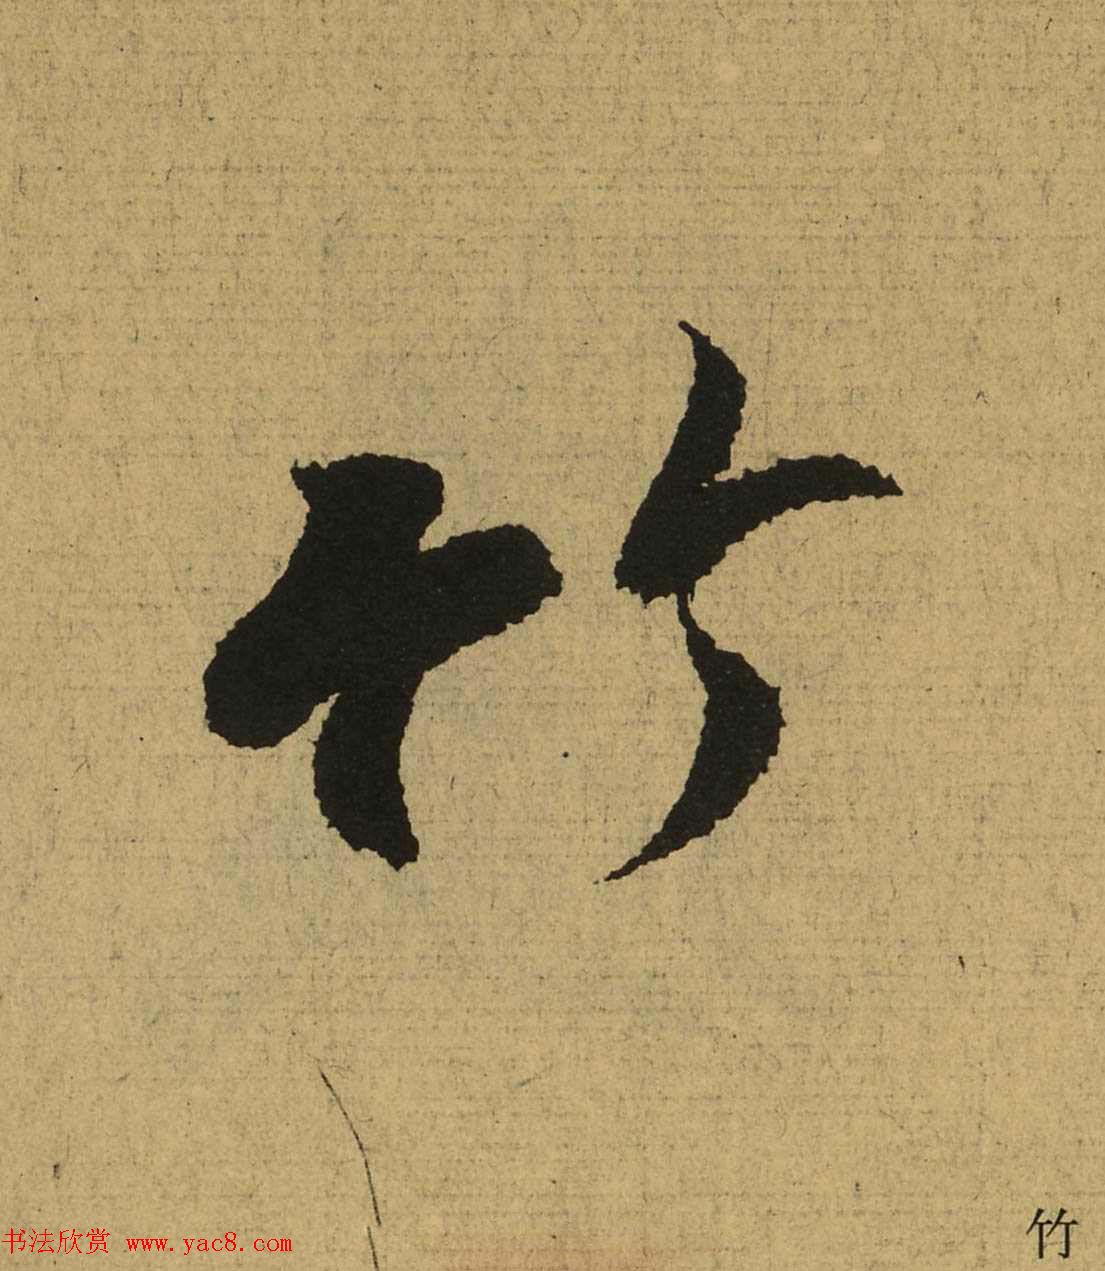 竹
竹
书法欣赏 www.yac8.com